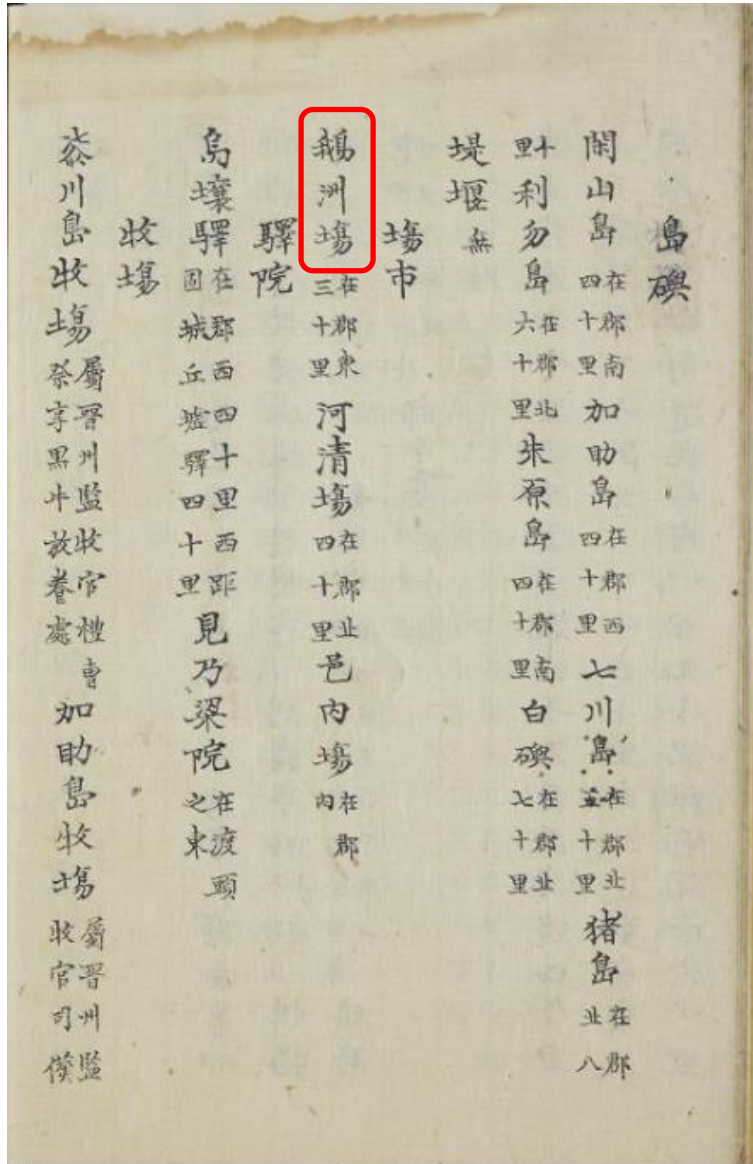 島礖
閑山島 在郡南四十里 加助島 在郡西四十里 七川島 在郡北五十里 猪島 在郡北八
十里 利勿島 在郡北六十里 朱原島 在郡南四十里 白礖 在郡北七十里
堤堰 無
塲市
鵝洲塲 在郡東三十里 河清塲 在郡北四十里 邑内塲 在郡内
驛院
烏壤驛 在郡西四十里西距固城丘墟驛四十里 見乃梁院 在渡頭之東
牧塲
柒川島牧塲 屬晋州監牧官禮曺祭享黒牛放養處 加助島牧塲 屬晋州監牧官司僕